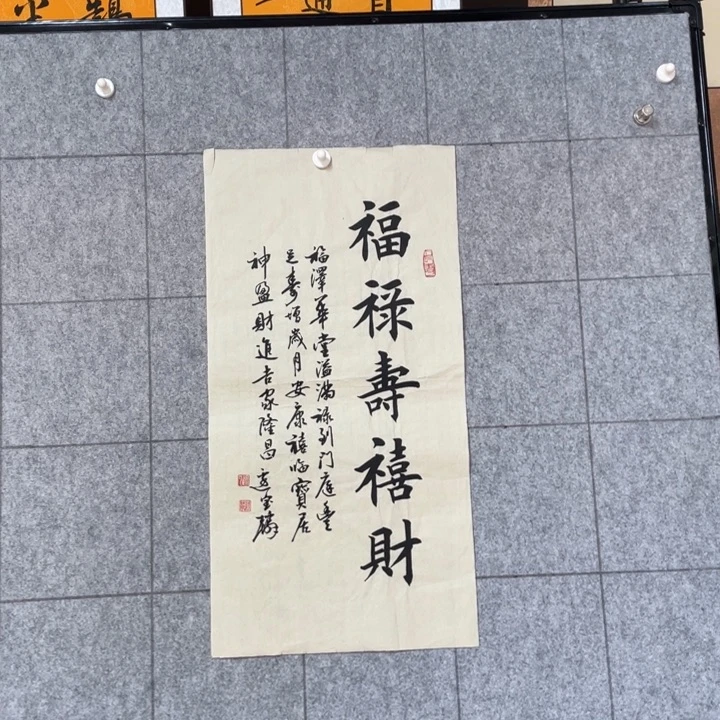 福祿壽禧財
福澤華堂溢滿祿到門庭豐
足壽增歲月安康禧臨寶居
神盈財進吉家隆昌